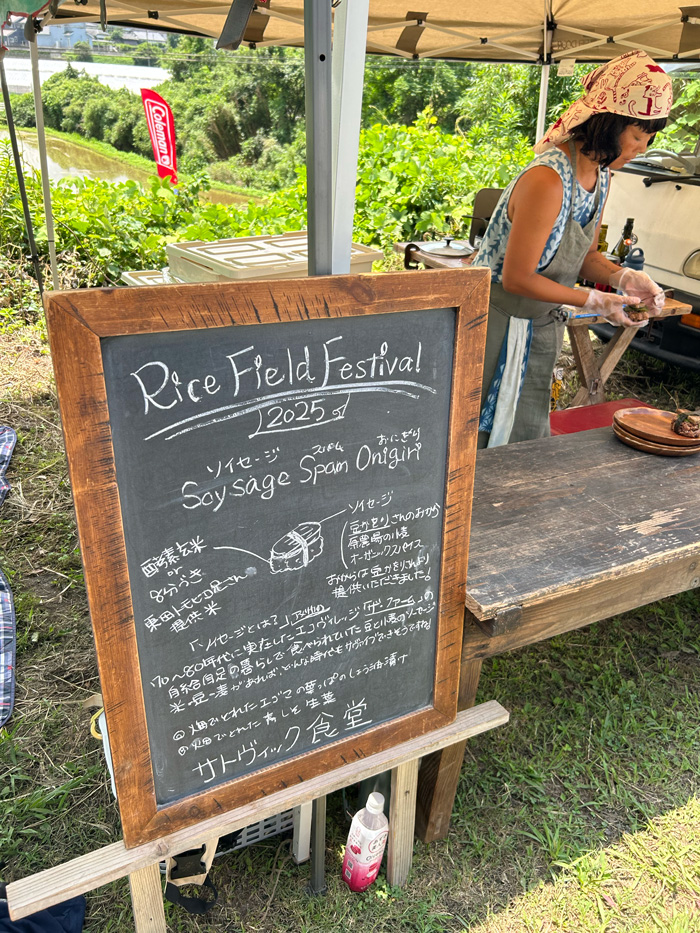 Coleman
Rice Field Festival
2025
ソイセージ スパム おにぎり
Soysage Spam Onigiri
ソイセージ
豆かをりさんのおから
原農場の小麦
オーガニックスパイス
おからは豆かをりさんより
提供いただきました!
酵素玄米
or
8分づき
東田トモヒロ兄さん
提供米
「ソイセージとは?」アメリカの
70〜80年代に実在したエコヴィレッジ「ザ・ファーム」の
自給自足の暮らしで食べられていた豆と小麦のソーセージ
米・豆・麦があれば、どんな時代もサヴァイブできそうですね!
畑でとれたエゴマの葉っぱのしょう油漬け
畑でとれた青しそ生葉
サトヴィック食堂